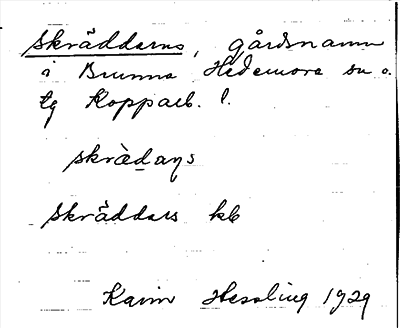 Skräddarns, gårdsnamn
i Brunna Hedemora sn o.
tg Kopparb. l.
skrädaṇs
Skräddars kb
Karin Hessling 1929